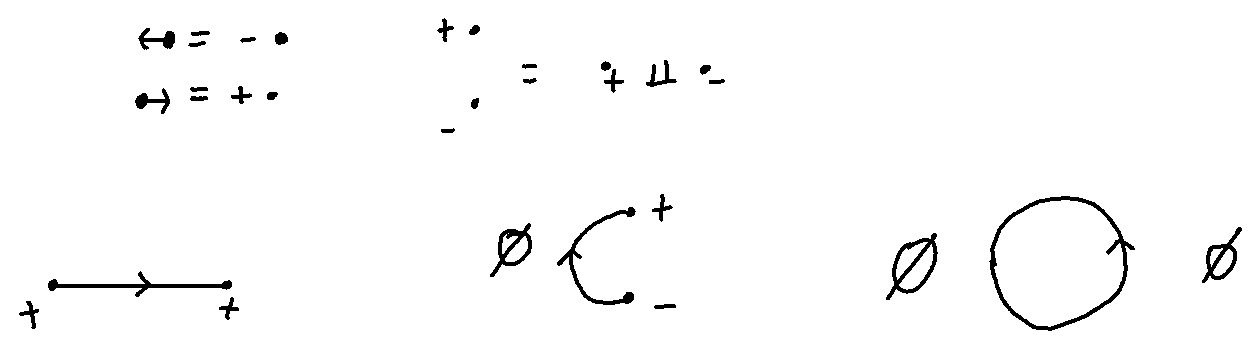 ←• = - •
•→ = + •
+ •
• - = •+ ⨿ •-
+ +
∅ + -
∅ ∅